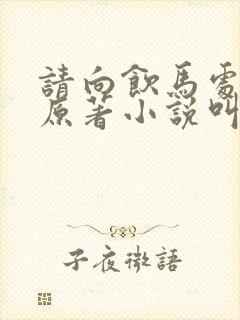 請向飲馬處
原著小說叫
子夜微語